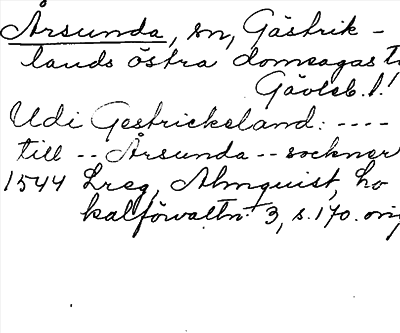 Årsunda, sn, Gästrik-
lands östra domsagas t
Gävleb. l.
Udi Gestricksland: ----
till -- Årsunda -- sockner
1544 Lreg, Almquist, Lo
kalförvaltn. 3, s. 170. orig